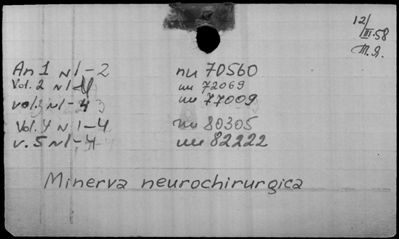 12/III-58
т.я.
An 1 N 1-2 nu 70560
Vol. 2 N 1-4 nu 72069
vol 3 N 1-4 nu 77009
Vol. 4 N 1-4 nu 80305
v. 5 N 1-4 nu 82222
Minerva neurochirurgica